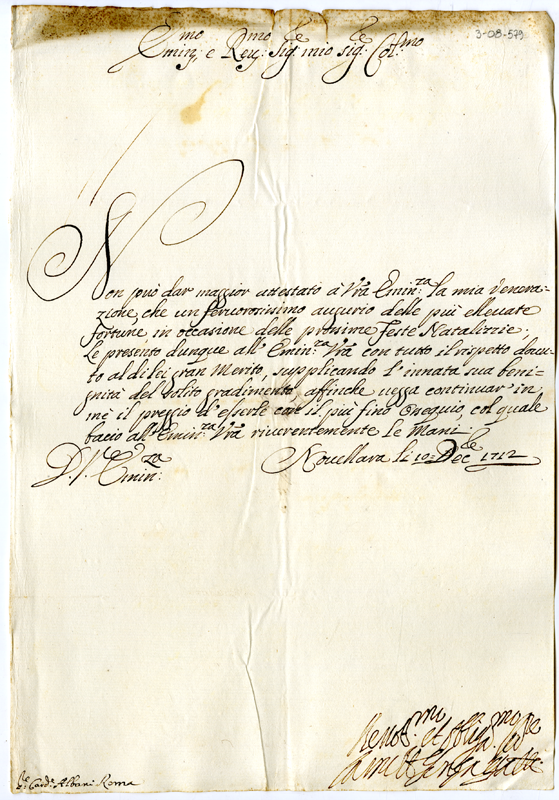 3-08-579
Emin:mo e Reu:mo Sig:re mio sig:re Col:mo
Non può dar maggior attestato à Vrã Emin:za la mia venera-
zione, che un feruorosissimo augurio delle più elleuate
fortune in occasione delle prossime feste Natalizzie;
Le presento dunque all'Emin:za Vrã con tutto il rispetto douu-
to al di lei gran Merito, supplicando l'innata sua beni-
gnità del solito gradimento, affinche uegga continuar in
me il preggio d'esserle con il più fino Ossequio, col quale
bacio all'Emin:za Vrã riuerentemente le Mani
D. V. Emin:za Nouellara li 10: Dec:bre 1712
Card:e Albani Roma